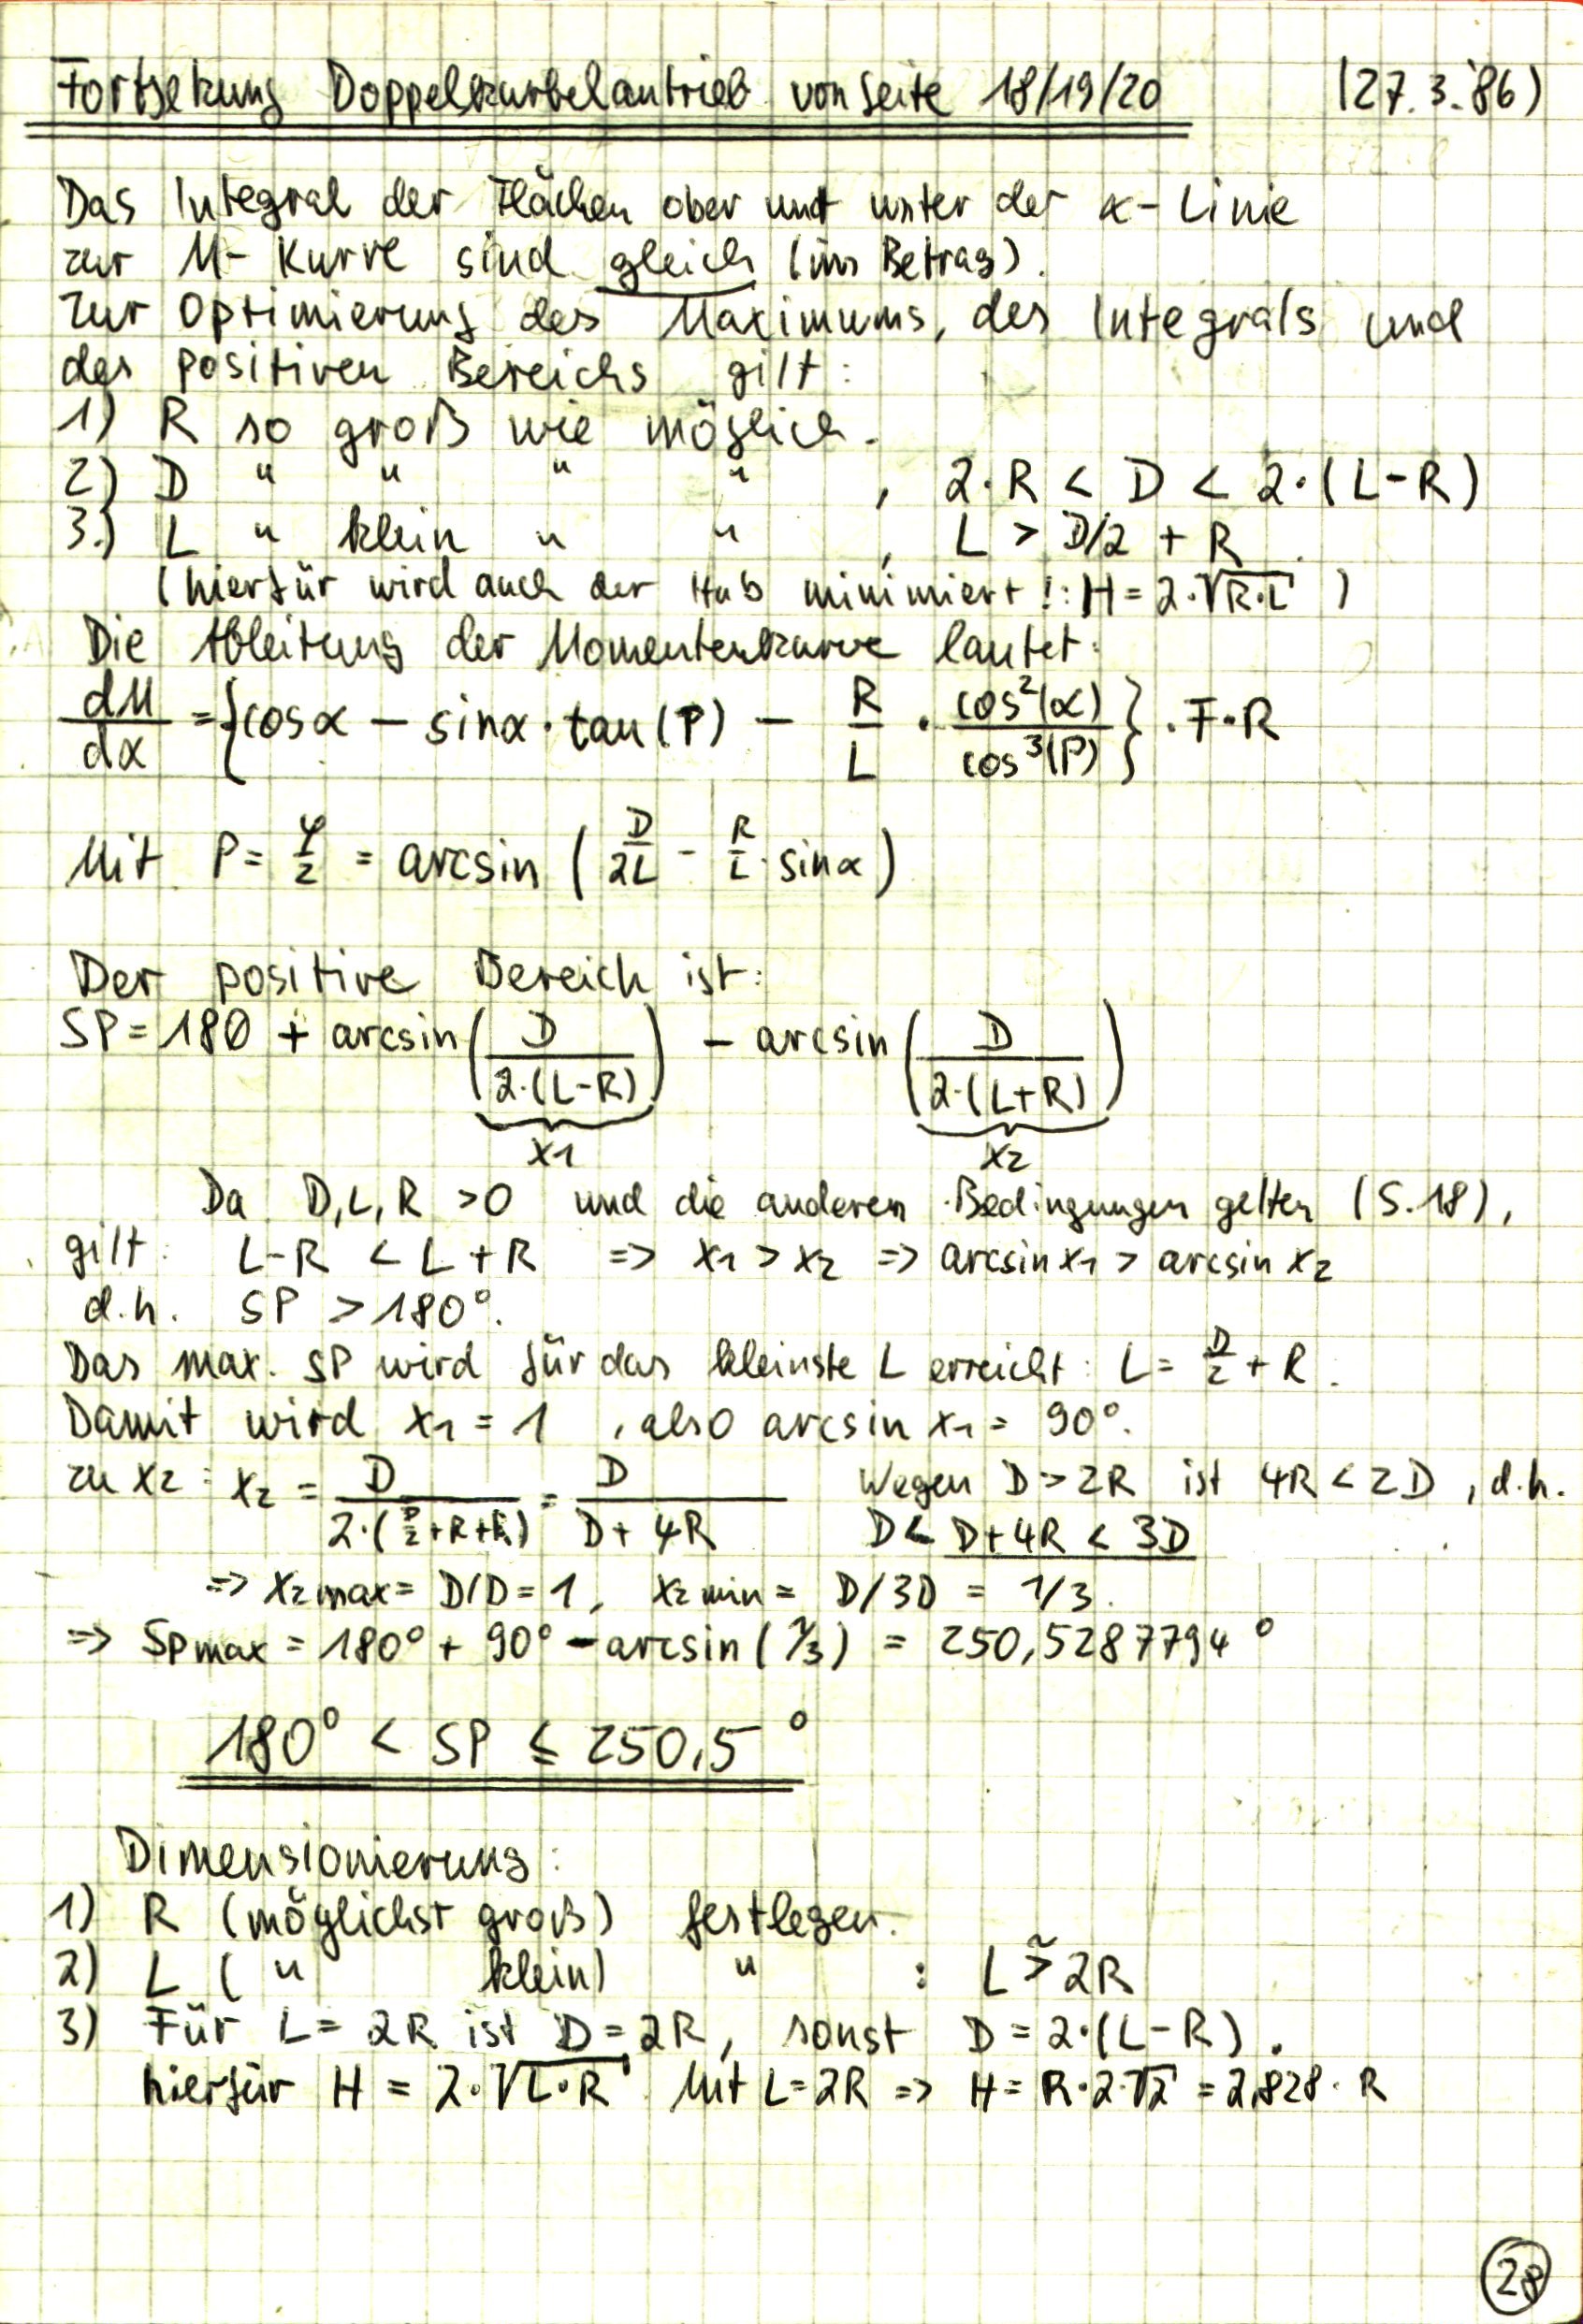 Fortsetzung Doppelkurbelantrieb von Seite 18/19/20 (27.3.'86)
Das Integral der Flächen ober und unter der α-Linie
zur M-Kurve sind gleich (im Betrag).
Zur Optimierung des Maximums, des Integrals und
des positiven Bereichs gilt:
1) R so groß wie möglich.
2) D " " " " , 2·R < D < 2·(L-R)
3.) L " klein " " , L > D/2 + R
(hierfür wird auch der Hub minimiert!: H = 2·√R·L )
Die Ableitung der Momentenkurve lautet:
dM/dα = {cosα - sinα·tan(P) - R/L · cos²(α)/cos³(P)} · F·R
Mit P = φ/2 = arcsin (D/2L - R/L · sinα)
Der positive Bereich ist:
SP = 180 + arcsin(D/2·(L-R)) - arcsin(D/2·(L+R))
x1 x2
Da D, L, R > 0 und die anderen Bedingungen gelten (S.18),
gilt: L-R < L+R => x1 > x2 => arcsin x1 > arcsin x2
d.h. SP > 180°.
Das max. SP wird für das kleinste L erreicht: L = D/2 + R.
Damit wird x1 = 1 , also arcsin x1 = 90°.
zu x2: x2 = D/2·(D/2+R+R) = D/D+4R Wegen D > 2R ist 4R < 2D, d.h.
D < D+4R < 3D
=> x2max = D/D = 1, x2min = D/3D = 1/3.
=> SPmax = 180° + 90° - arcsin(1/3) = 250,5287794°
180° < SP ≤ 250,5°
Dimensionierung:
1) R (möglichst groß) festlegen.
2) L ( " klein) " : L ≳ 2R
3) Für L = 2R ist D = 2R, sonst D = 2·(L-R).
hierfür H = 2·√L·R. Mit L=2R => H = R·2·√2 = 2,828·R
28